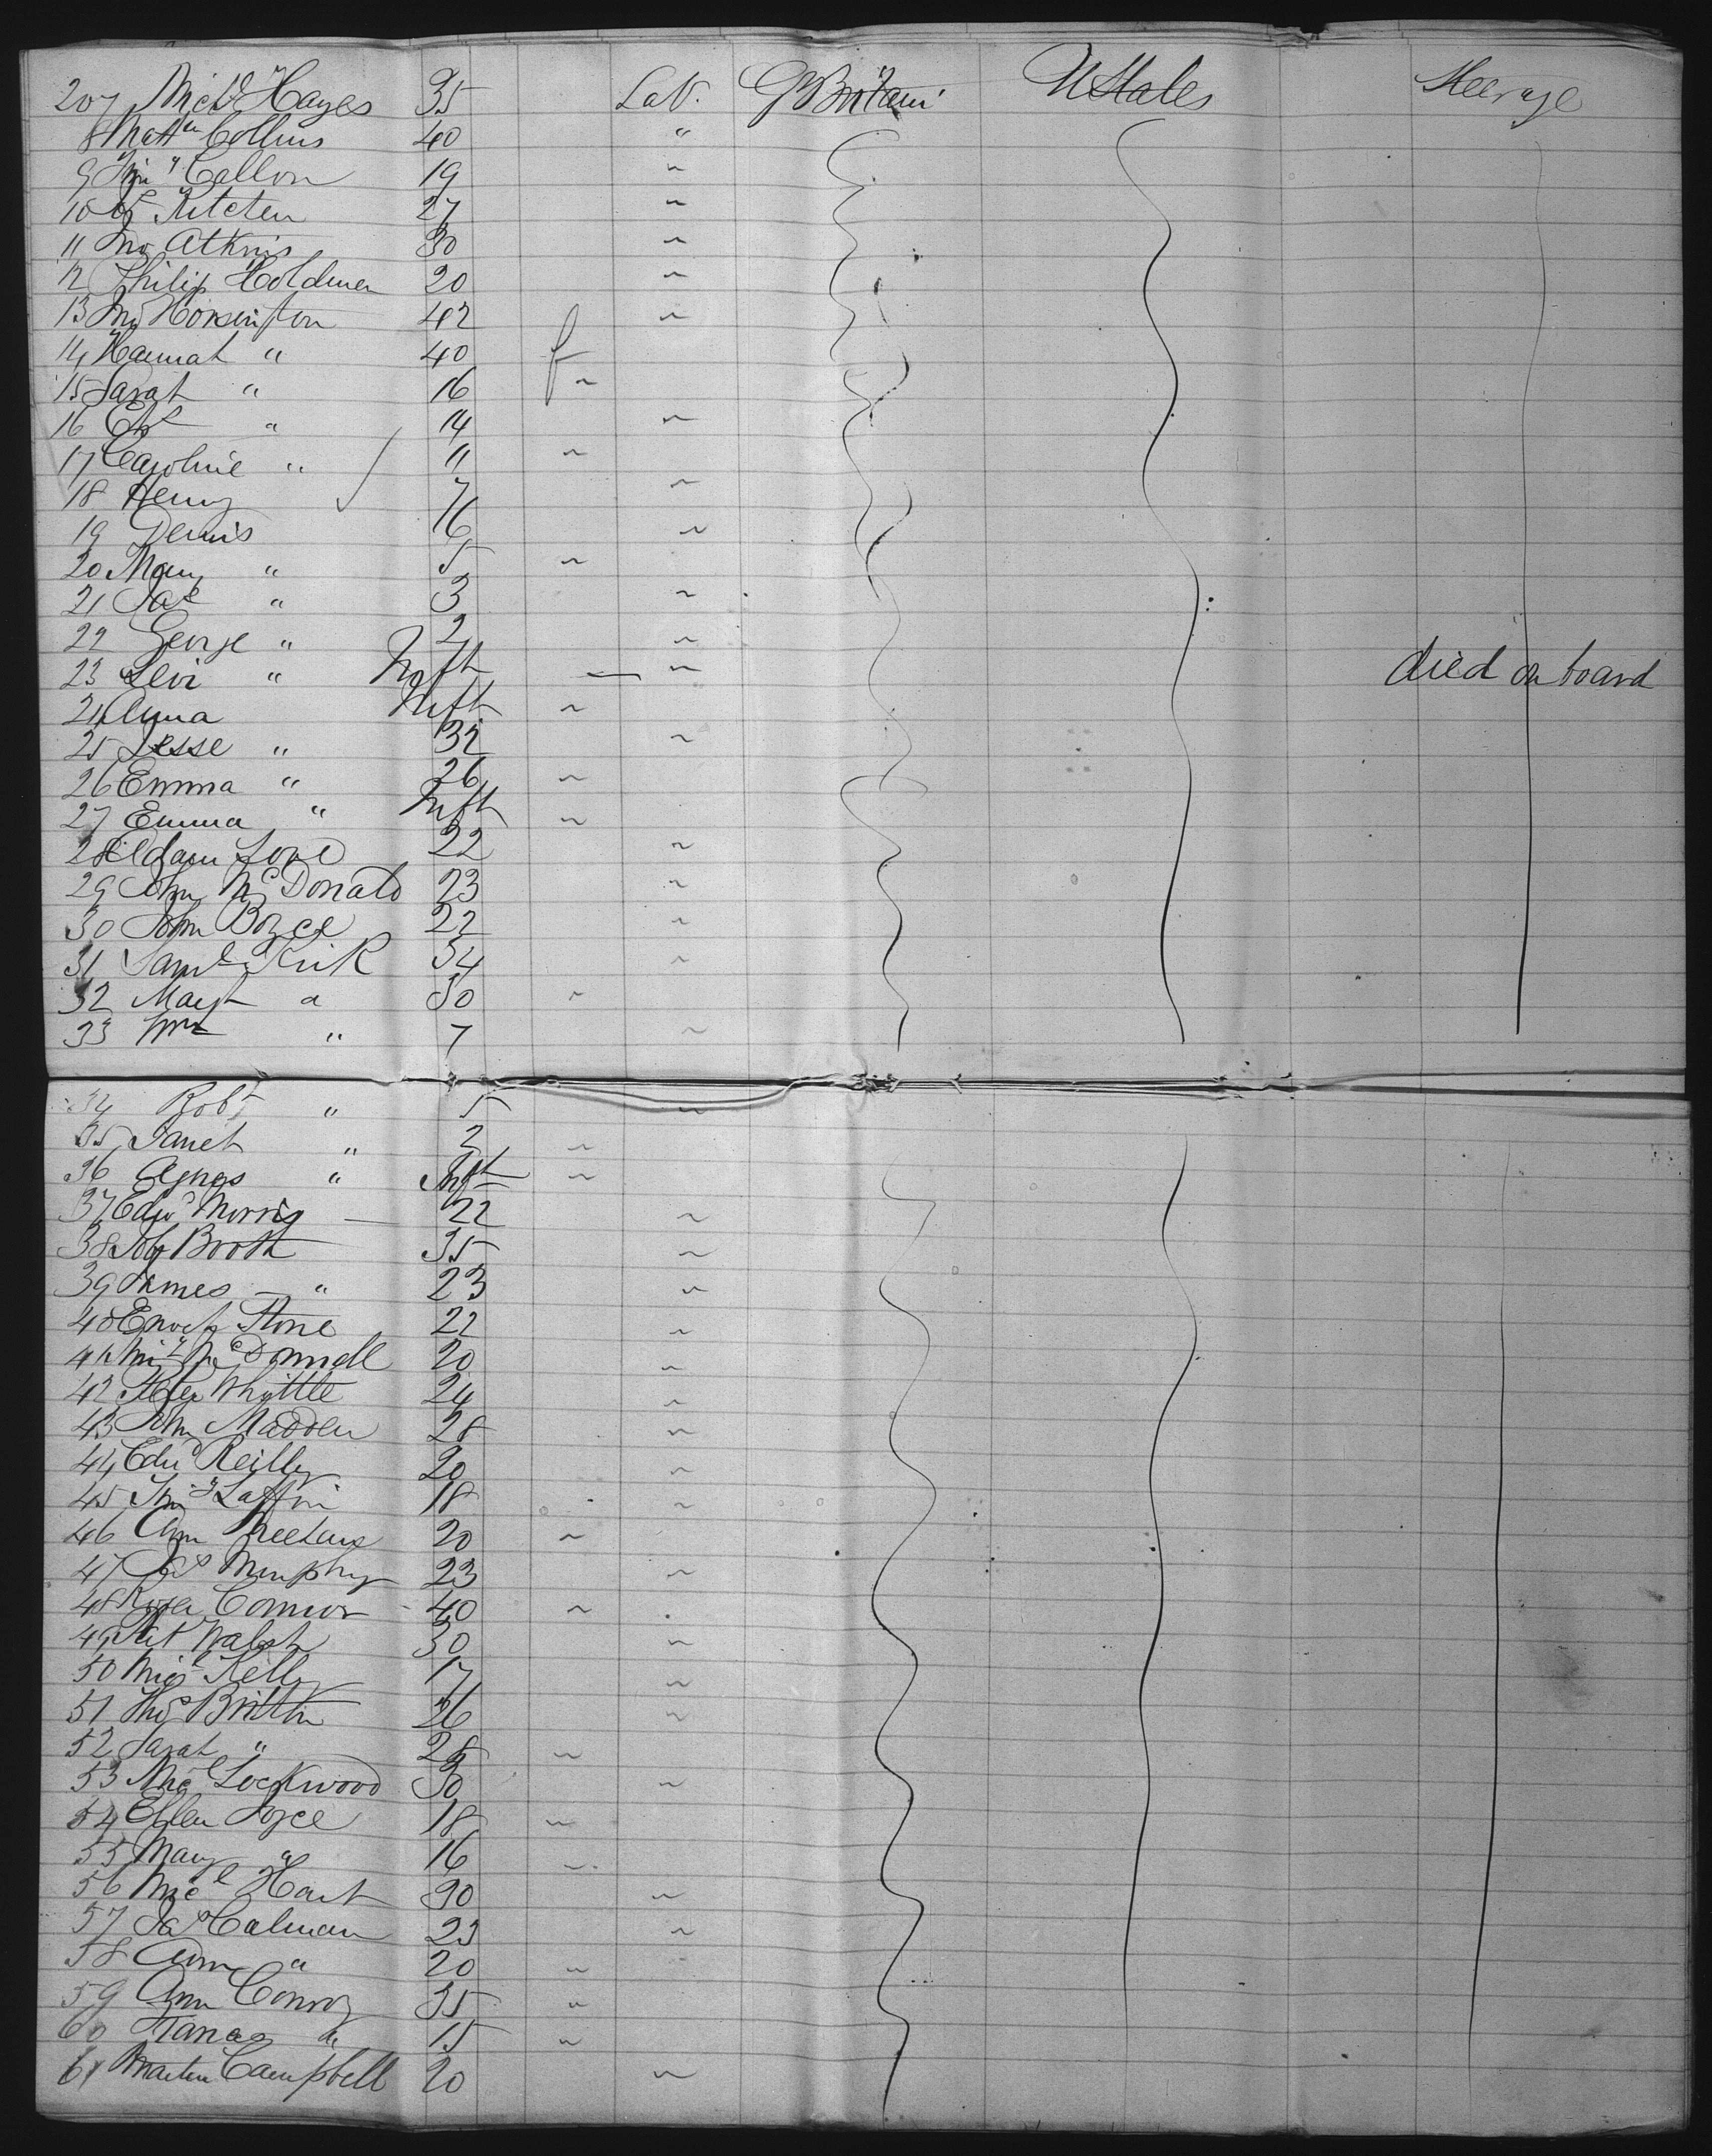 207 Micl Hayes 35 Lab. G Britain U States Steerage
8 Mattw Collins 40 "
9 Callon 19 "
10 Kitchen 27 "
11 Jno Atkins 30 "
12 Philip Holdmen 20 "
13 Jno 42 "
14 Hannah " 40 f
15 Sarah " 16 "
16 " 14 "
17 Caroline " 11 "
18 Henry 7 "
19 Dennis 16 "
20 Mary " 5 "
21 " 3 "
22 George " 2 "
23 Levi " Inft — " died on board
24 Anna Inft "
25 Jesse " 32 "
26 Emma " 26 "
27 Emma " Inft "
28 Adam Love 22 "
29 John McDonald 23 "
30 John Boyce 22 "
31 Saml Kirk 34 "
32 Margt " 30 "
33 Wm " 7 "
34 Robt " 5 "
35 Janet " 2 "
36 Agnes " Inft "
37 Edwd Morris — 22 "
38 Booth 35 "
39 James " 23 "
40 Enoch Stone 22 "
41 McDonnell 20 "
42 Peter Whyttle 24 "
43 John Madden 28 "
44 Edwd Reilly 20 "
45 Laffin 18 "
46 Ann 20 "
47 Jas Murphy 23 "
48 Connor 40 "
49 Pat Walsh 30 "
50 Micl Kelly 17 "
51 Thos Brittin 26 "
52 Sarah " 28 "
53 Lockwood 30 "
54 Ellen Joyce 18 "
55 Mary " 16 "
56 Micl Hart 30 "
57 Jas Calman 23 "
58 Ann " 20 "
59 Ann Conroy 35 "
60 " 15 "
61 Martin Campbell 20 "